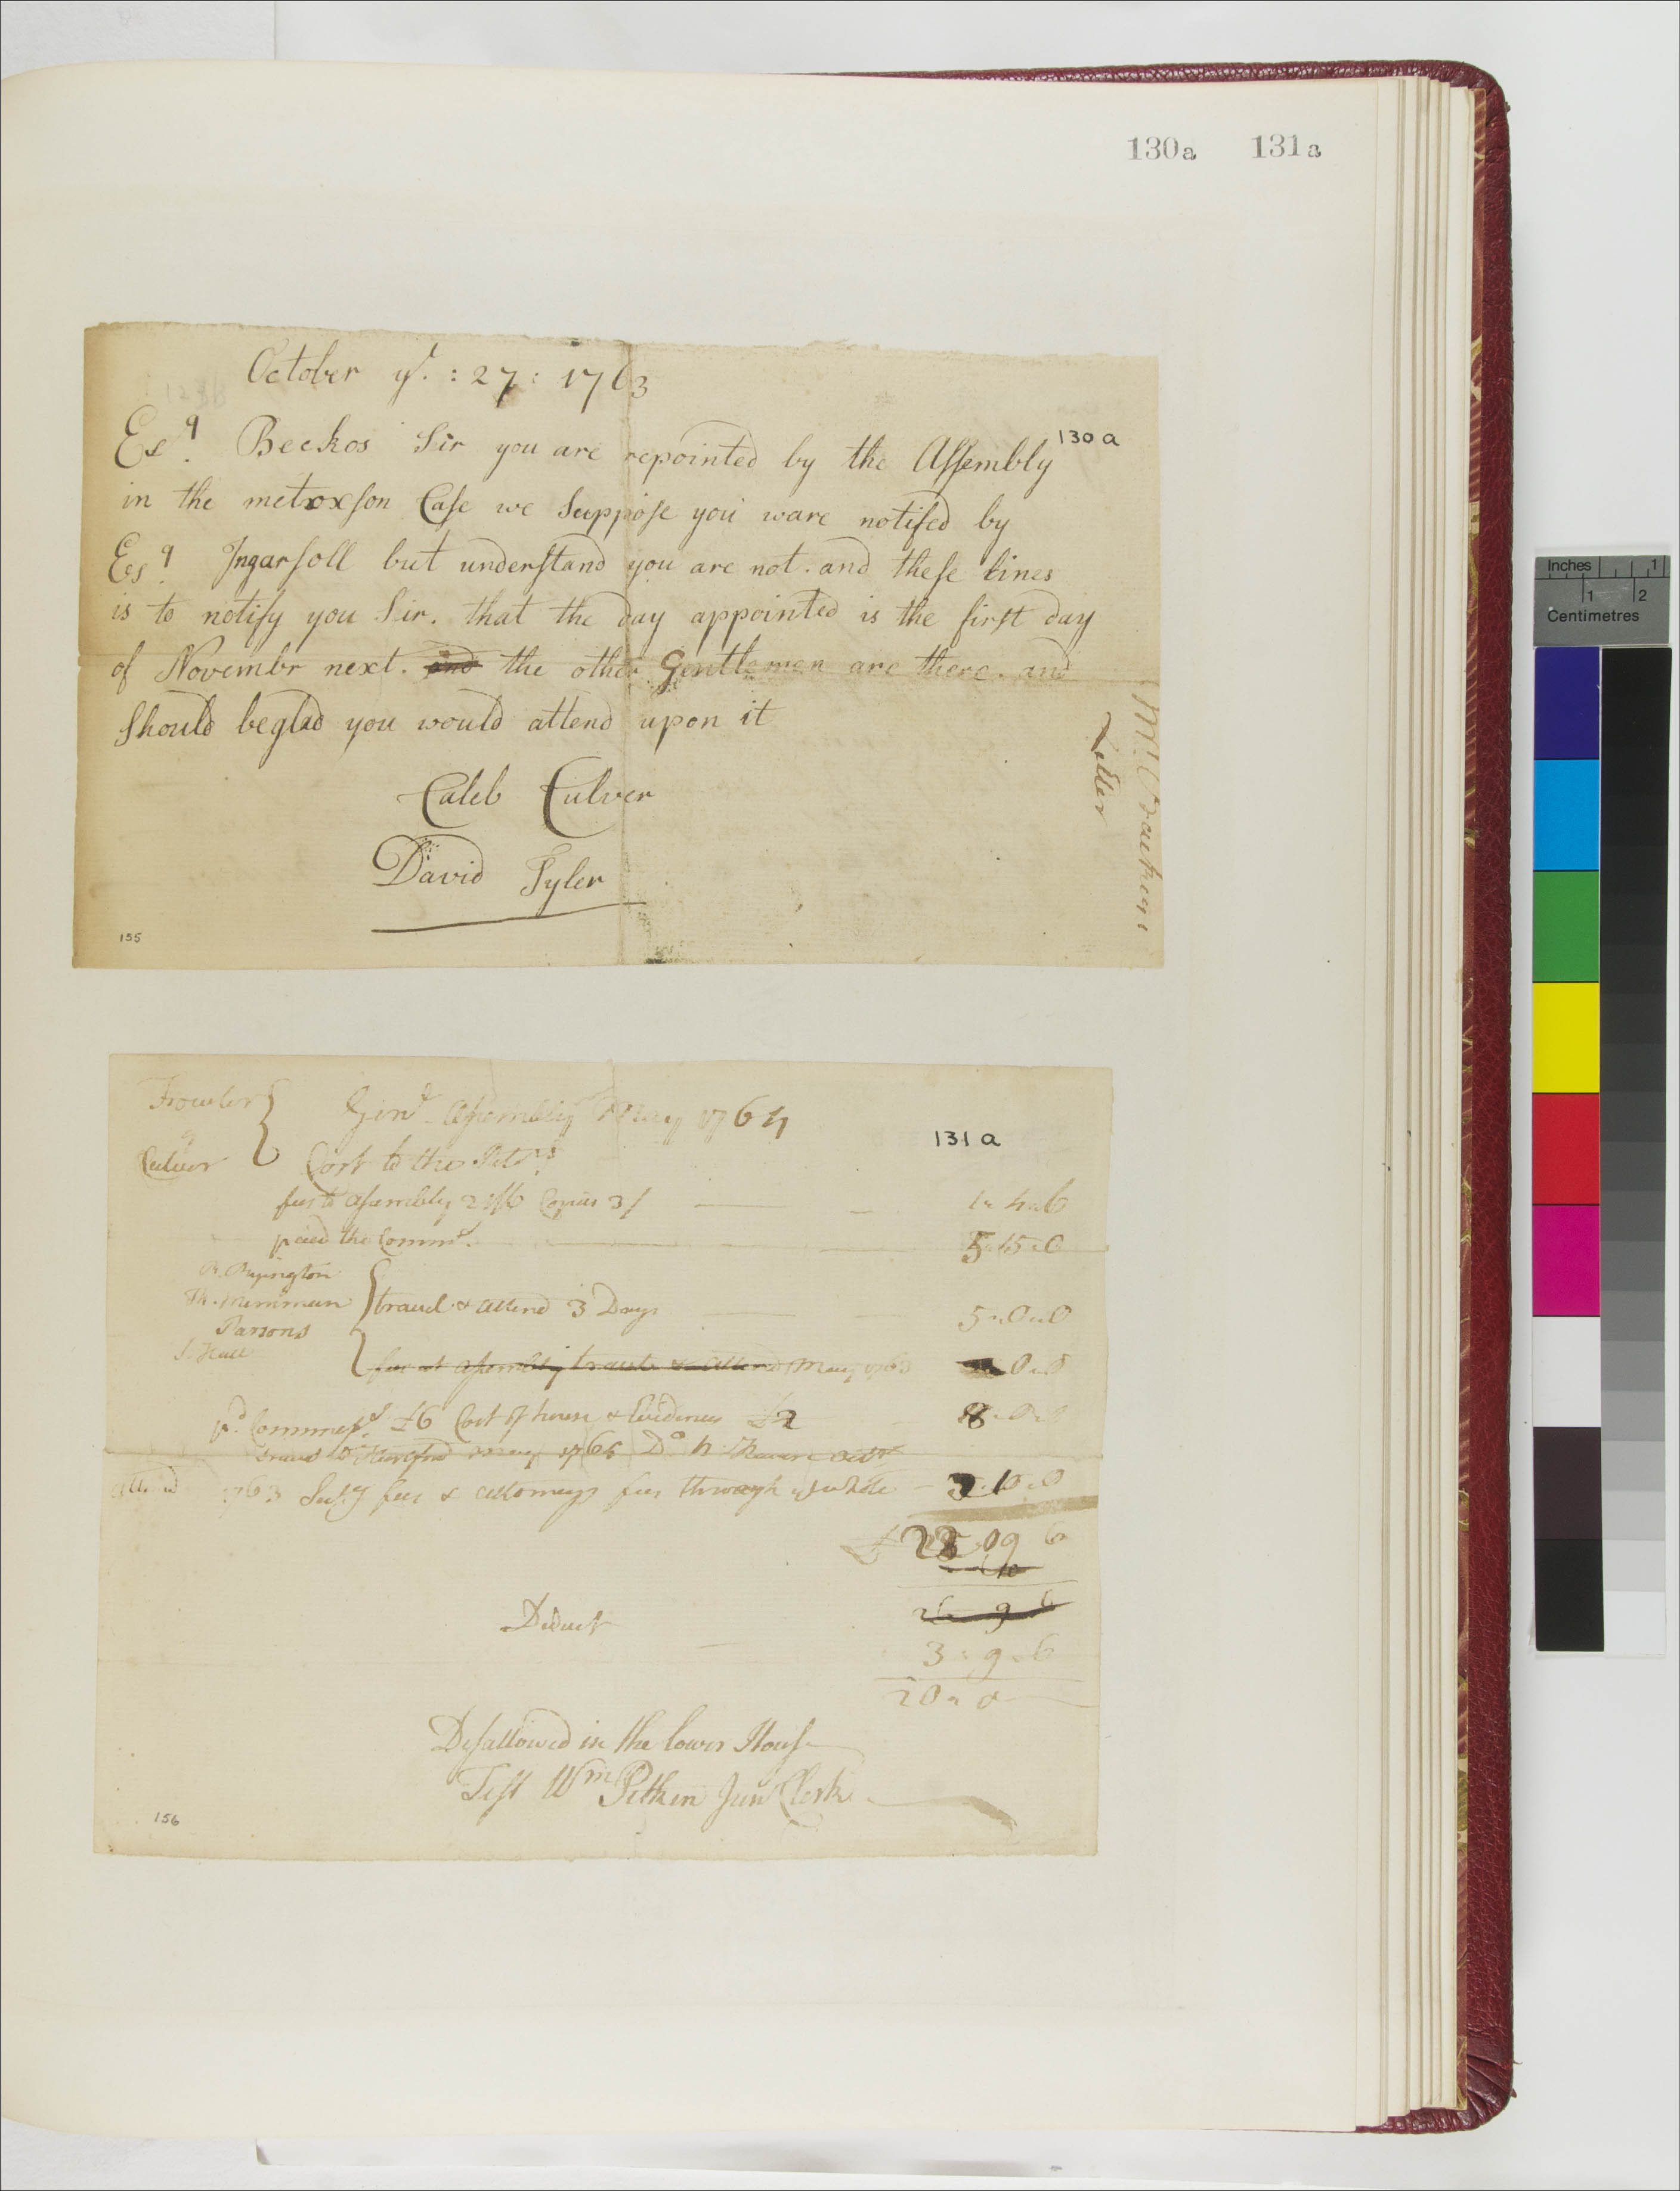 130a 131a
October ye. : 27 : 1763
130 a
Esq. Beekos Sir you are repointed by the Assembly
in the metxxson Case we Suppose you ware notifed by
Esq. Ingarsoll but understand you are not. and these lines
is to notify you Sir. that the day appointed is the first day
of Novembr next. and the other Gentlemen are there. and
Should beglad you would attend upon it
Caleb Culver
David Tyler
155
Letter
Fowler
Culver
Genl. Assembly May 1764
131 a
Cost to the Petrs
fees to Assembly 21/6 Copies 3/ 1 " 4 " 6
paid the Commt. 5 " 15 " 0
Parsons
travel & attend 3 Days 5 " 0 " 0
fees at Assembly travel & attend May 1763
pd. £6 Cost of house & Evidences £2 8 " 0 " 0
1763 fees & attorneys fees through ye whole
£ 09 6
26 9 6
Deduct
3 " 9 " 6
20 " 0
Desallowed in the lower House
Test Wm Pitkin Junr Clerk
156
Inches 1
1 2
Centimetres